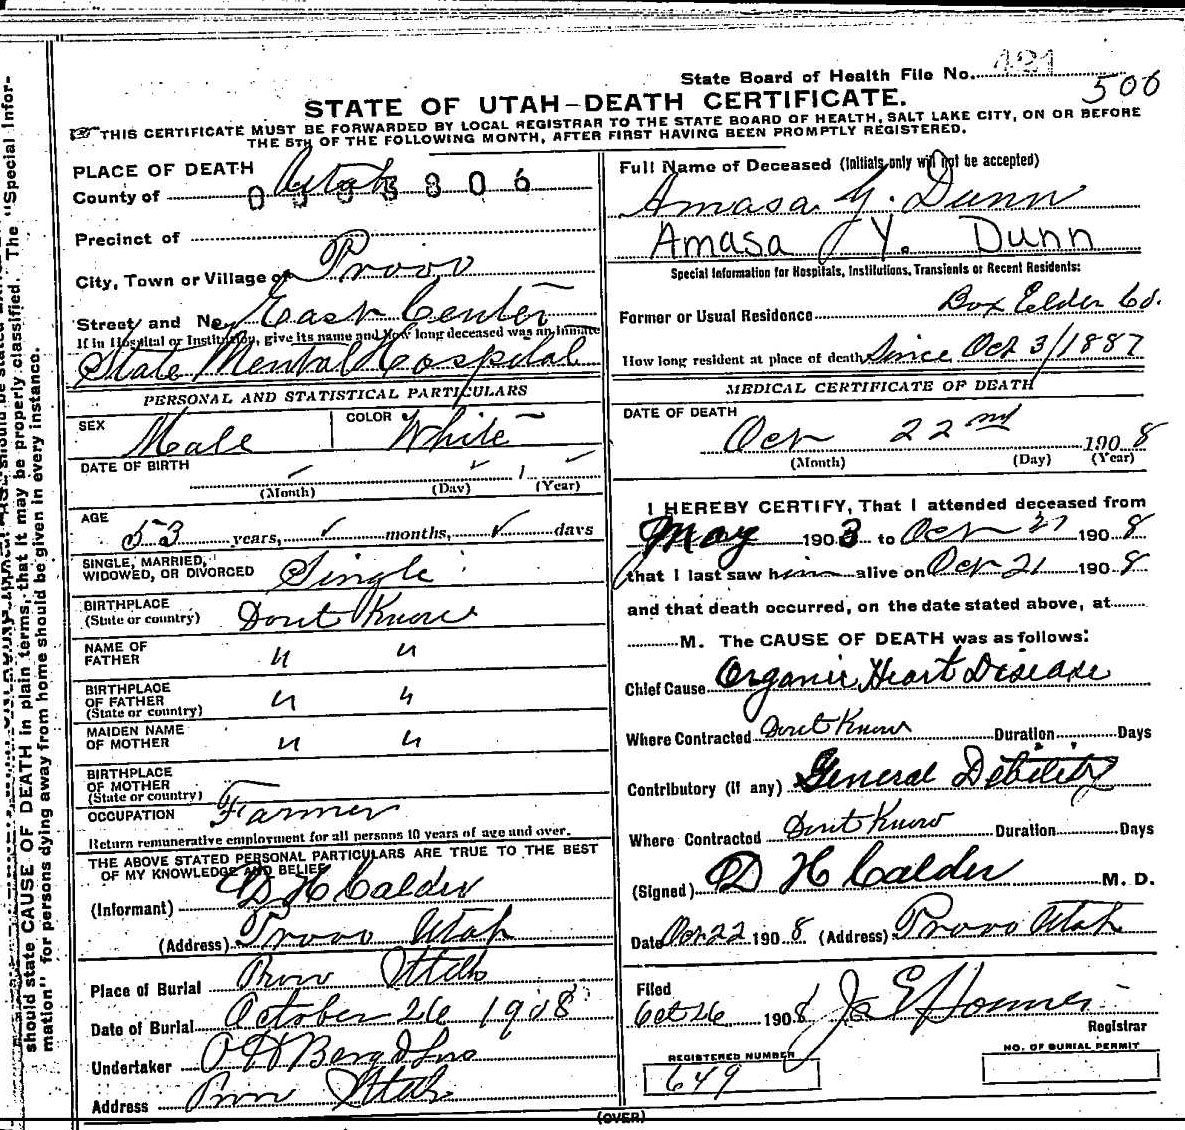 State Board of Health File No. 421
506
STATE OF UTAH–DEATH CERTIFICATE.
THIS CERTIFICATE MUST BE FORWARDED BY LOCAL REGISTRAR TO THE STATE BOARD OF HEALTH, SALT LAKE CITY, ON OR BEFORE
THE 5TH OF THE FOLLOWING MONTH, AFTER FIRST HAVING BEEN PROMPTLY REGISTERED.
PLACE OF DEATH
County of Utah
Precinct of
City, Town or Village of Provo
Street and No. East Center
If in Hospital or Institution, give its name and how long deceased was an inmate
State Mental Hospital
PERSONAL AND STATISTICAL PARTICULARS
SEX Male COLOR White
DATE OF BIRTH 1
(Month) (Day) (Year)
AGE
53 years, months, days
SINGLE, MARRIED,
WIDOWED, OR DIVORCED Single
BIRTHPLACE
(State or country) Dont Know
NAME OF
FATHER " "
BIRTHPLACE
OF FATHER
(State or country) " "
MAIDEN NAME
OF MOTHER " "
BIRTHPLACE
OF MOTHER
(State or country)
OCCUPATION Farmer
Return remunerative employment for all persons 10 years of age and over.
THE ABOVE STATED PERSONAL PARTICULARS ARE TRUE TO THE BEST
OF MY KNOWLEDGE AND BELIEF
(Informant) D H Calder
(Address) Provo Utah
Place of Burial Provo Utah
Date of Burial October 26 1908
Undertaker O H Berg & Sons
Address Provo Utah
Full Name of Deceased (Initials only will not be accepted)
Amasa Y. Dunn
Amasa Y. Dunn
Special Information for Hospitals, Institutions, Transients or Recent Residents:
Former or Usual Residence Box Elder Co.
How long resident at place of death Since Oct 3/1887
MEDICAL CERTIFICATE OF DEATH
DATE OF DEATH
Oct 22nd 1908
(Month) (Day) (Year)
I HEREBY CERTIFY, That I attended deceased from
May 1903 to Oct 21 1908
that I last saw him alive on Oct 21 1908
and that death occurred, on the date stated above, at
M. The CAUSE OF DEATH was as follows:
Chief Cause Organic Heart Disease
Where Contracted Dont Know Duration Days
Contributory (if any) General Debility
Where Contracted Dont Know Duration Days
(Signed) D H Calder M. D.
Date Oct 22 1908 (Address) Provo Utah
Filed
Oct 26 1908 Homer
Registrar
REGISTERED NUMBER
649
NO. OF BURIAL PERMIT
(OVER)
should state CAUSE OF DEATH in plain terms, that it may be properly classified. The "Special Infor-
mation" for persons dying away from home should be given in every instance.